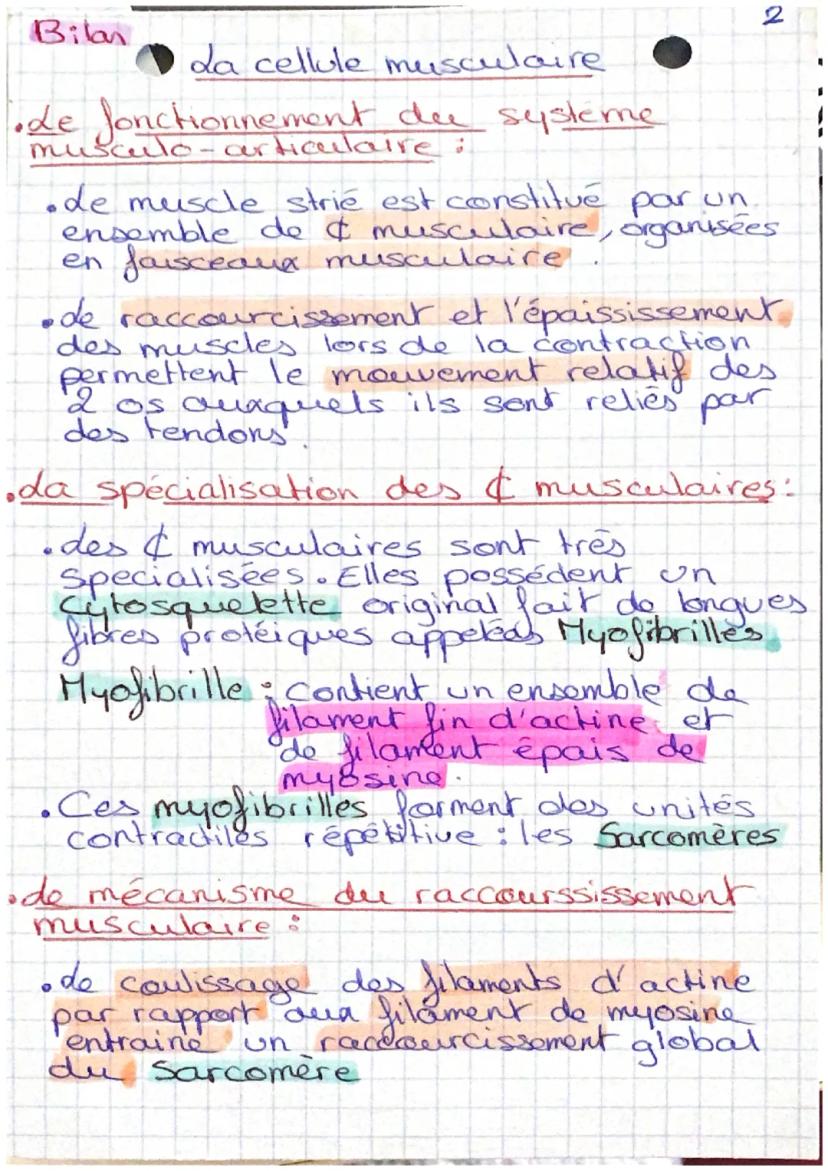 2
Bilan
La cellule musculaire
• Le fonctionnement du système
musculo-articulaire :
• Le muscle strié est constitué par un
ensemble de ₵ musculaire, organisées
en faisceaux musculaire.
• Le raccourcissement et l'épaississement
des muscles lors de la contraction
permettent le mouvement relatif des
2 os auxquels ils sont reliés par
des tendons.
• La spécialisation des ₵ musculaires :
• Les ₵ musculaires sont très
specialisées. Elles possédent un
Cytosquelette original fait de longues
fibres protéiques appelées Myofibrilles
Myofibrille : Contient un ensemble de
filament fin d'actine et
de filament épais de
myosine.
• Ces myofibrilles forment des unités
contractiles répétitive : les Sarcomères
• Le mécanisme du raccourssissement
musculaire :
• Le coulissage des filaments d'actine
par rapport aux filament de myosine
entraine un raccourcissement global
du Sarcomère